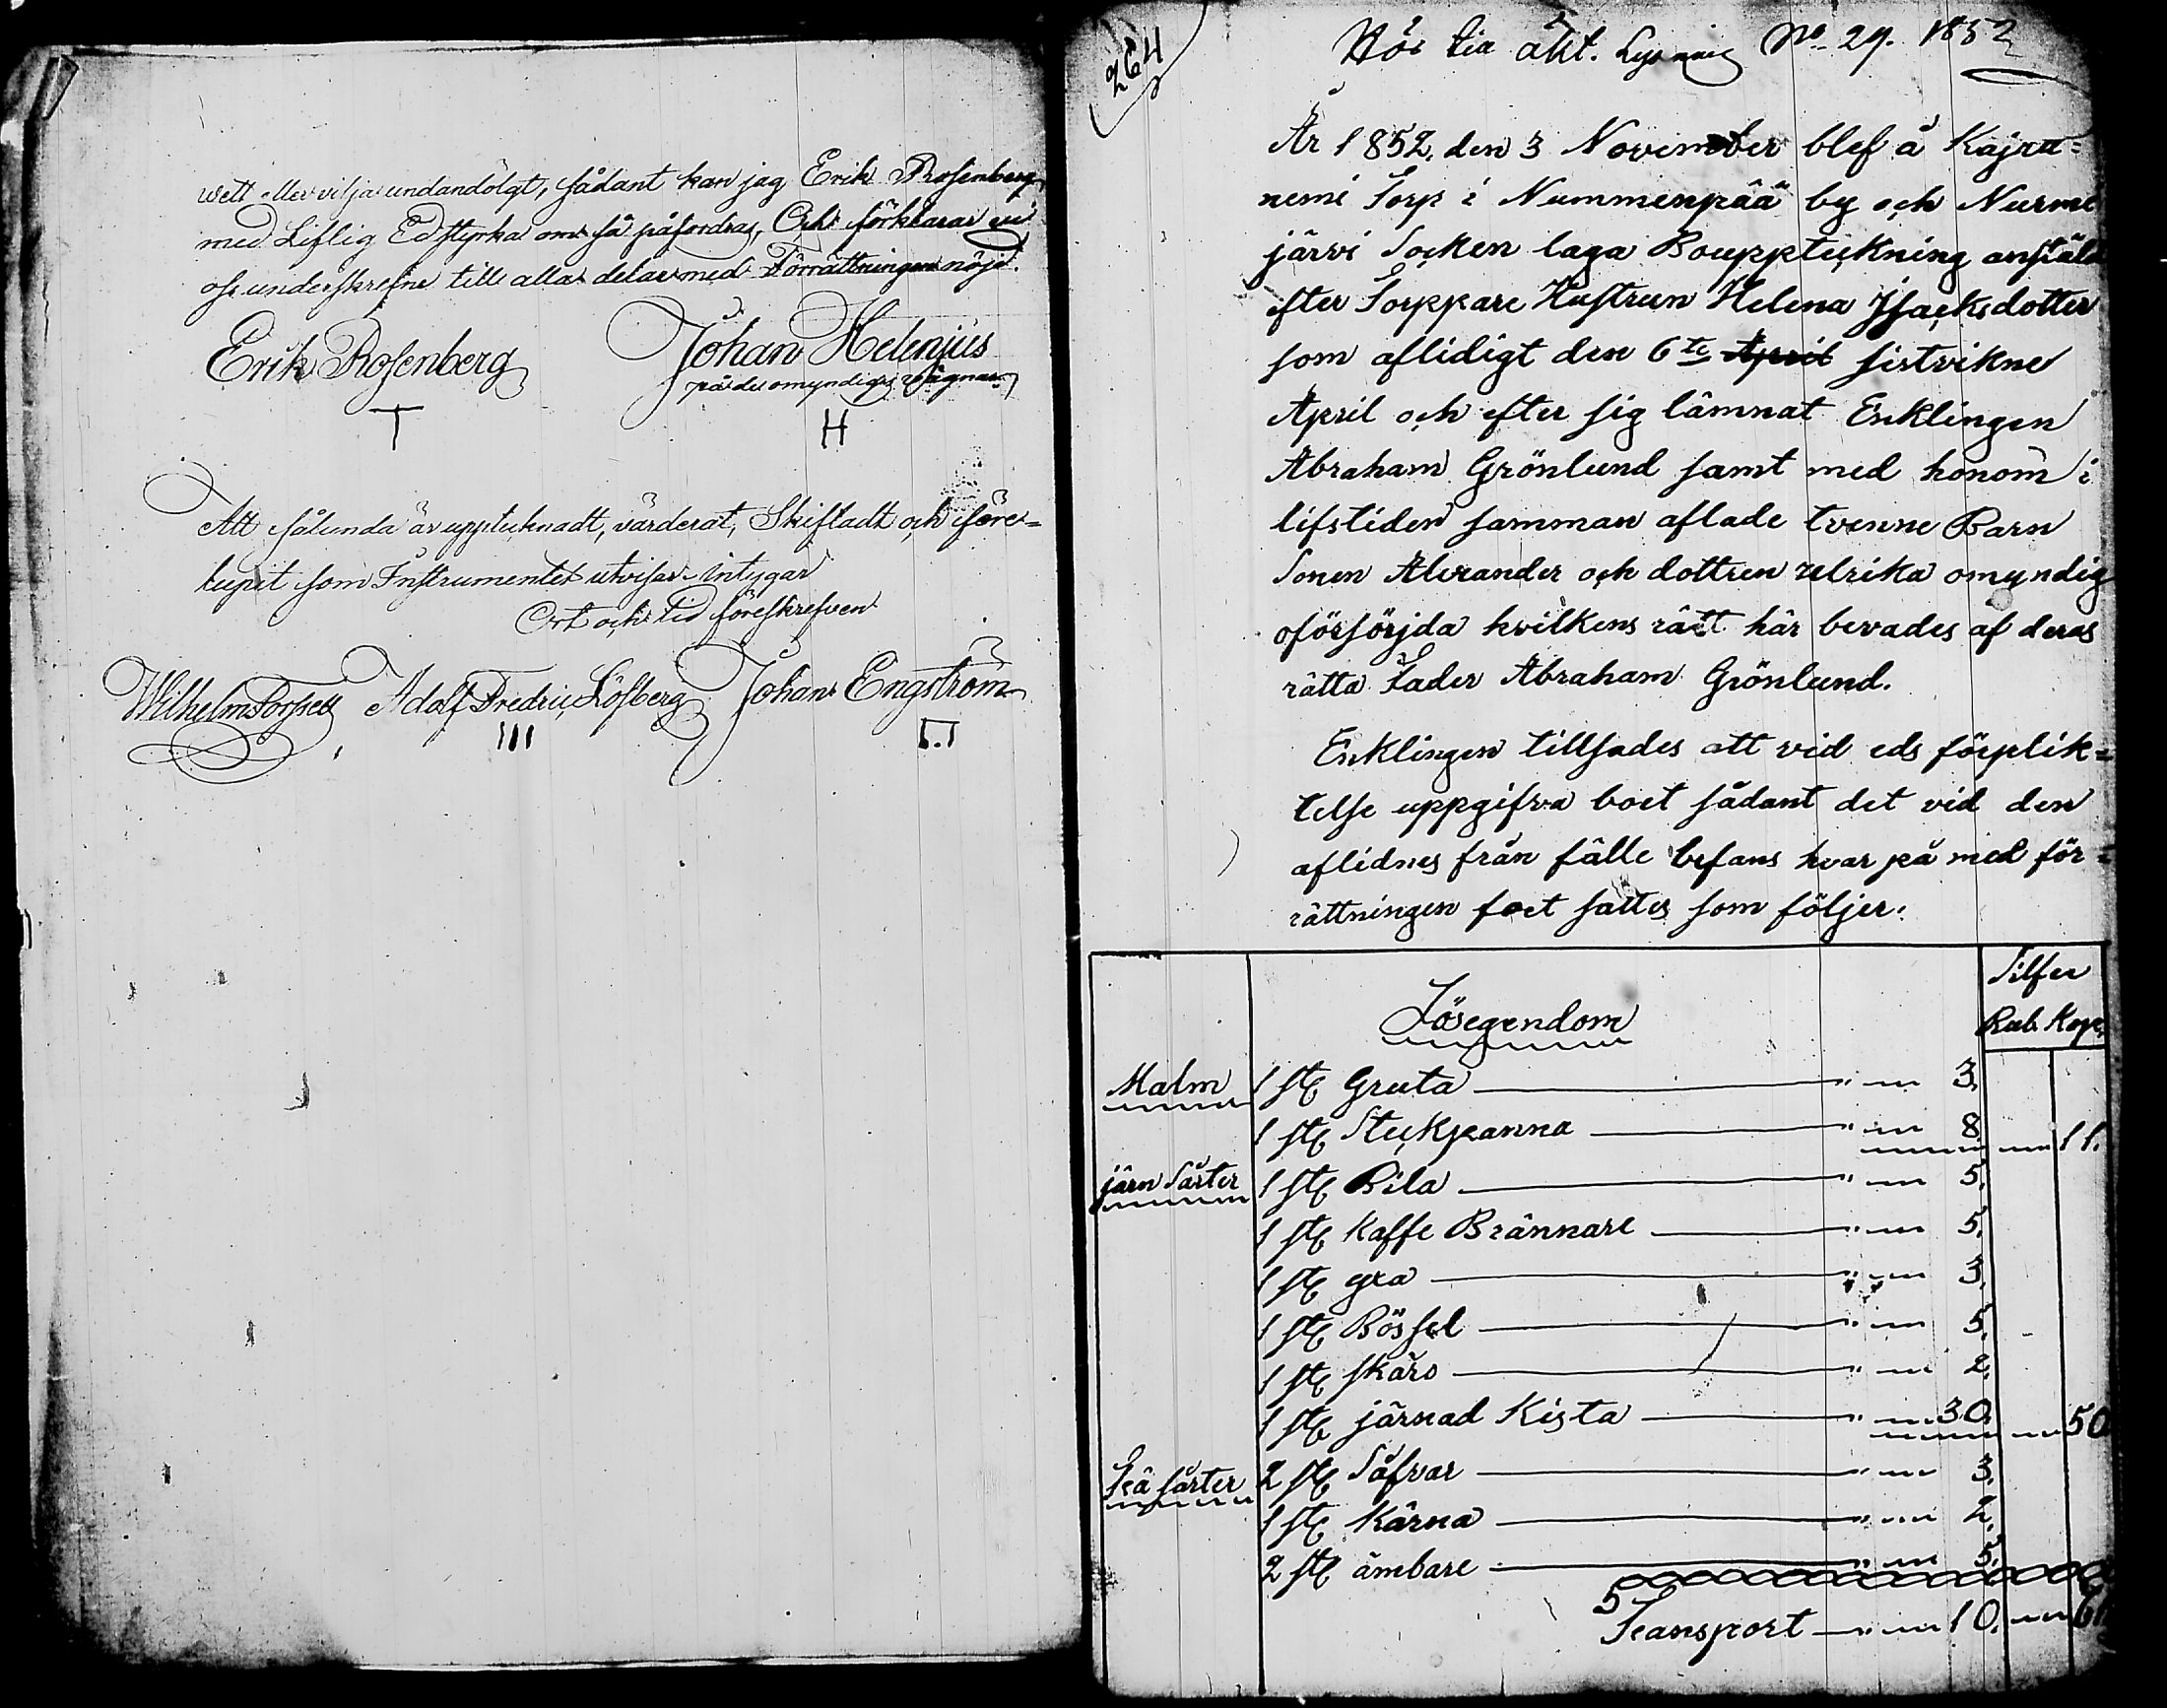 wett eller vilja undandölgt, sådant kan jag Erik Rosenberg
med Liflig Ed styrka om så påfordras, Och förklarar vi
oss underskrefne till alla delar med Förrättningen nöjd.
Erik Rosenberg Johan Helenjus
på de omyndigas vägnar
T H
Att sålunda är upptecknadt, värderat, Skiftadt och före=
lupit som Instrumentet utvisar intygar
Ort och tid föreskrefven
Wilhelm Forssell Adolf Fredric Löfberg Johan Engström
III
264
No 29. 1852
År 1852, den 3 November blef å Kajra=
nemi Torp i Nummenpää by och Nurmi
järvi Socken laga Bouppteckning anstäld
efter Torppare Hustrun Helena Jsacksdotter
som aflidigt den 6te April sistvikne
April och efter sig lämnat Enklingen
Abraham Grönlund samt med honom i
lifstiden samman aflade tvenne Barn
Sonen Alexander och dottren Ulrika omyndig
oförsörjda hvilkens rätt här bevades af deras
rätta Fader Abraham Grönlund.
Enklingen tillsades att vid eds förplik=
telse uppgifva boet sådant det vid den
aflidnes från fälle befans hvar på med för=
rättningen foet sattes som följer.
Silfer
Lösegendom
Rub. Kop.
Malm 1 st Gruta 3.
1 st Steckpanna 8 11.
järn Sårter 1 st Bila 5.
1 st Kaffe Brännare 5.
1 st gra 3.
1 st Bössel 5.
1 st skäro 2.
1 st järnad Kista 30. 50
Trä sårter 2 st Såfvar 3.
1 st Kärna 2.
2 st ämbare 5.
5
Transport 10. 61